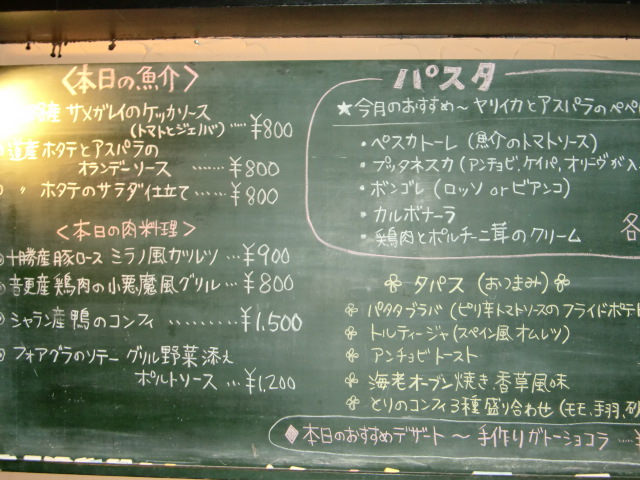 〈本日の魚介〉
産 サメガレイのケッカソース
(トマトとジェノバ) ‥‥ ¥800
道産ホタテとアスパラの
オランデーソース ‥‥‥ ¥800
〃 ホタテのサラダ仕立て ‥‥‥ ¥800
〈本日の肉料理〉
十勝産豚ロース ミラノ風カツレツ … ¥900
音更産鶏肉の小悪魔風グリル … ¥800
シャラン産 鴨のコンフィ ‥‥‥‥‥ ¥1,500
フォアグラのソテー グリル野菜添え
ポルトソース … ¥1,200
パスタ
★今月のおすすめ~ ヤリイカとアスパラのペペ
・ペスカトーレ (魚介のトマトソース)
・プッタネスカ (アンチョビ、ケイパ、オリーヴが入
・ボンゴレ (ロッソ or ビアンコ)
・カルボナーラ
・鶏肉とポルチーニ茸のクリーム 各
タパス (おつまみ)
パタタブラバ (ピリ辛トマトソースのフライドポテト
トルティージャ (スペイン風オムレツ)
アンチョビトースト
海老オーブン焼き 香草風味
とりのコンフィ 3種盛り合わせ (モモ、手羽、砂
◆本日のおすすめデザート ~ 手作りガトーショコラ ‥‥ ¥